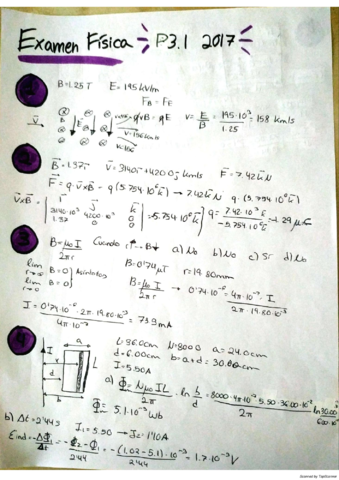 Examen Física P3.1 2017
1
B=1.25T E=195 kV/m
F_B = F_E
qvB = qE v = E/B = 195·10³/1.25 = 158 km/s
v=156 km/s
2
B⃗=1.37i⃗ v⃗=3140i⃗+4200j⃗ km/s F⃗=7.42k⃗ N
F⃗=q·v⃗×B⃗ = q(5.754·10⁶k⃗) → 7.42k⃗N q·(5.754·10⁶k⃗)
v⃗×B⃗ = | i⃗ j⃗ k⃗ |
3140·10³ 4200·10³ 0
1.37 0 0
= -5.754·10⁶k⃗ q = 7.42·10⁻³k⃗/-5.754·10⁶k⃗ = -1.29 μC
3
B=μ₀I/2πr Cuando r↑ -- B↓ a) No b) No c) Sí d) No
lim r→∞ B=0 } Asintotas B=0'74μT r=19.80mm
lim r→0 B=0
B=μ₀I/2πr → 0'74·10⁻⁶ = 4π·10⁻⁷·I/2π·19.80·10⁻³
I = 0'74·10⁻⁶·2π·19.80·10⁻³/4π·10⁻⁷ = 73'9 mA
4
I r d a b L
L=36.0cm N=8000 a=24.0cm
d=6.00cm b=a+d=30.00cm
I=5.50A
a) Φ = Nμ₀IL/2π · ln b/d = 8000·4π·10⁻⁷·5.50·36.00·10⁻²/2π ln 30.00/6.00
Φ = 5.1·10⁻³ Wb
b) Δt = 2'44s I₁ = 5.50 → I₂ = 1'10A
Eind = -ΔΦ/Δt = -Φ₂-Φ₁/2'44 = -(1.02-5.1)·10⁻³/2'44 = 1.7·10⁻³V
Scanned by TapScanner